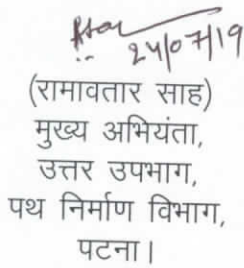 24/07/19
(रामावतार साह)
मुख्य अभियंता,
उत्तर उपभाग,
पथ निर्माण विभाग,
पटना।